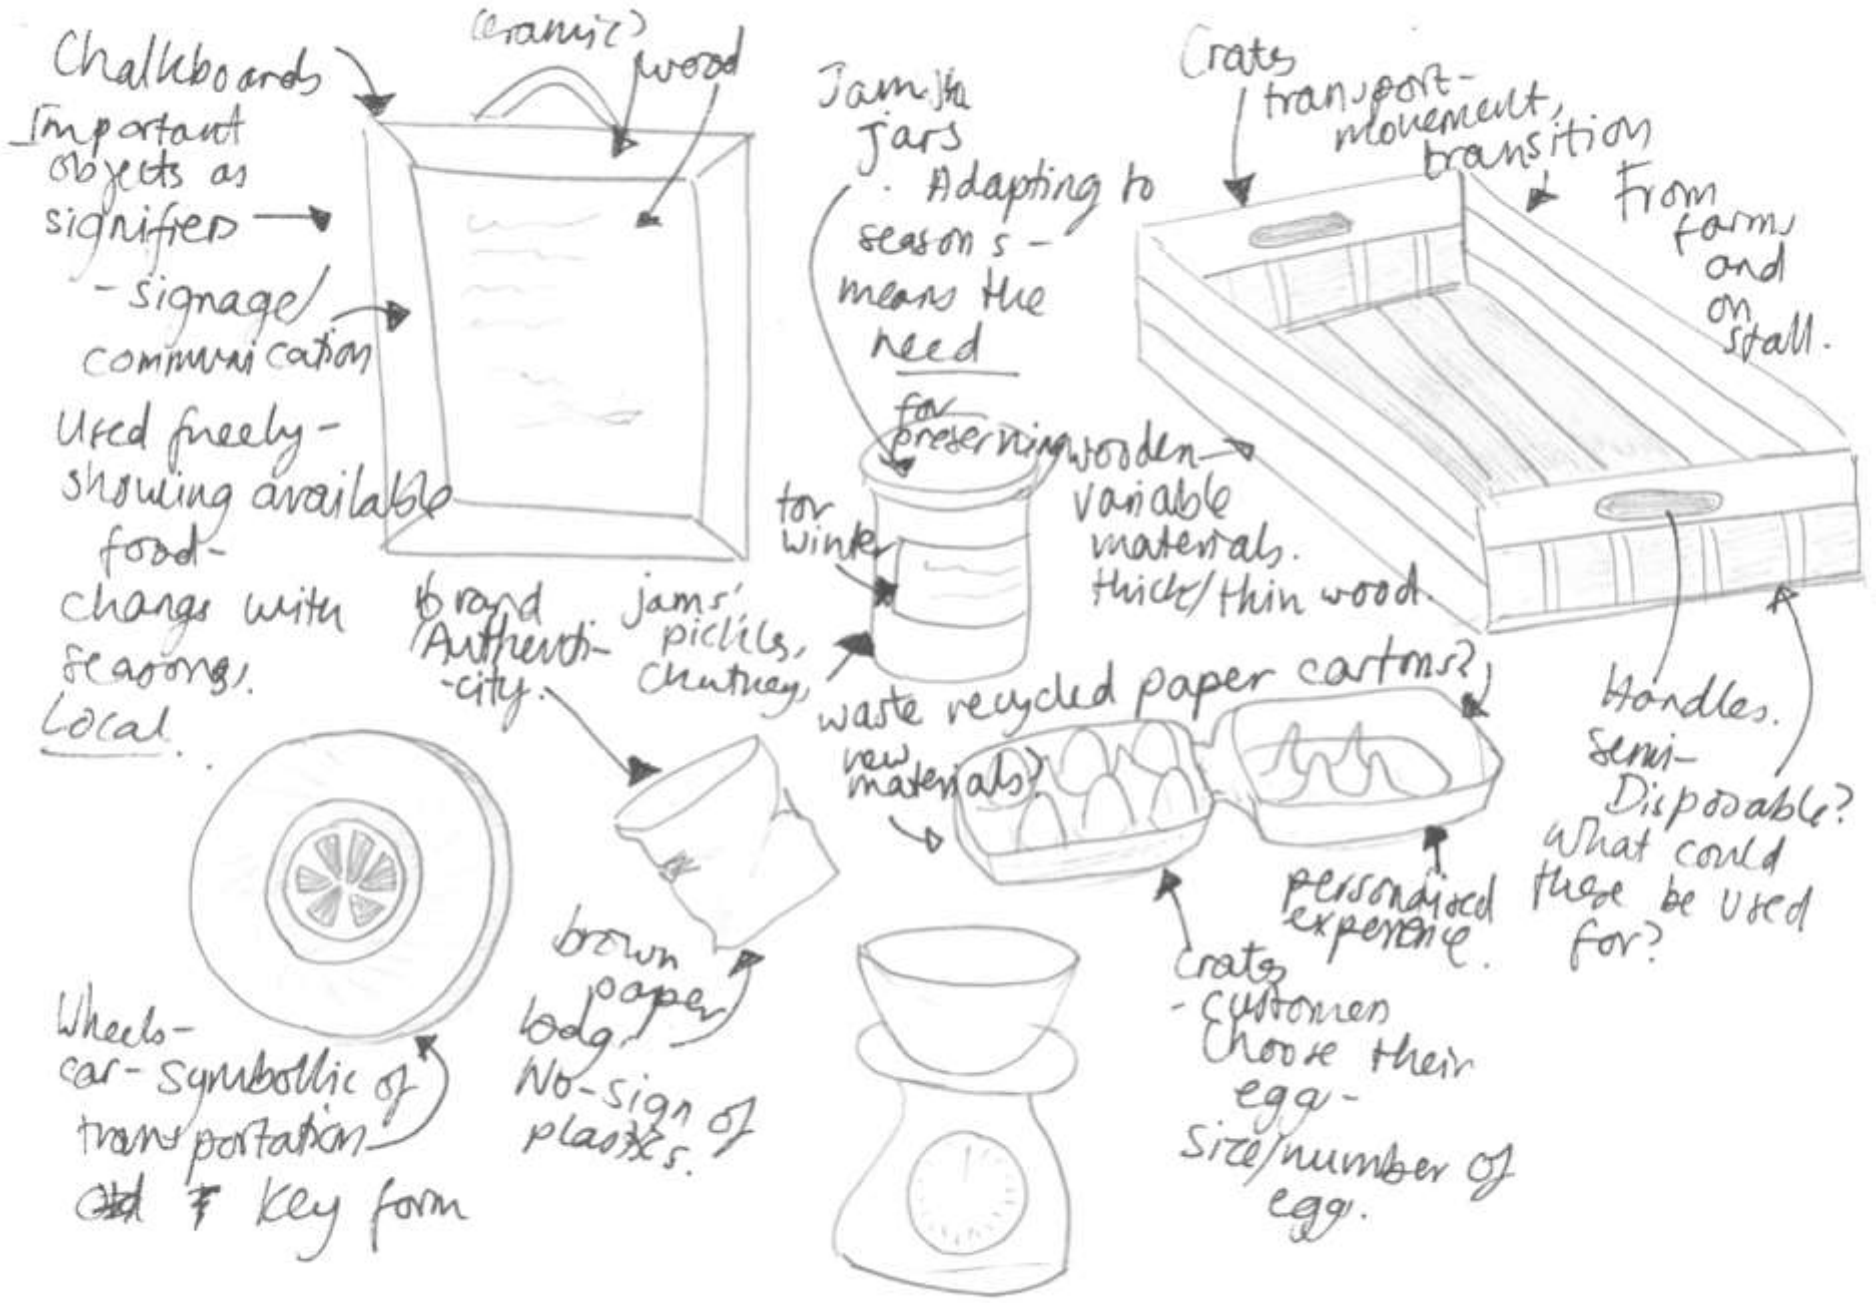 Chalkboards
Important
objects as
signifiers
- signage/
communication
Used freely -
showing available
food -
change with
seasons.
Local.
ceramic?
wood
Jam
jars
Adapting to
seasons -
means the
need
for
preserving
for
winter
jams,
pickles,
chutney,
Crates
transport -
movement,
transition
From
farms
and
on
stall.
wooden -
variable
materials.
thick/thin wood.
Handles.
semi-
Disposable?
What could
these be used
for?
brand
Authenti-
-city.
brown
paper
bag.
No-sign of
plastics.
waste recycled paper cartons?
raw
materials?
personalised
experience.
Crates
- customers
Choose their
egg -
size/number of
egg.
Wheels -
car - symbollic of
transportation
Key form